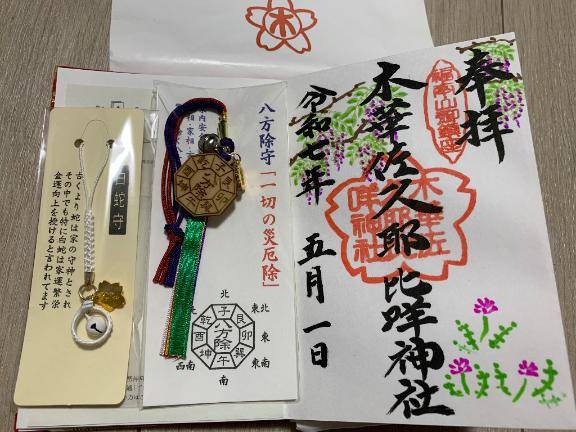 木
奉拝
木華佐久耶比咩神社
令和七年
五月一日
木華佐
耶
咩神社
八方除守「一切の災厄除」
北
東北
東
東南
南
西南
子
艮
卯
巽
午
坤
酉
乾
八方除
白蛇守
古くより蛇は家の守神とされ
その中でも特に白蛇は家運繁栄
金運向上を授けると言われてます